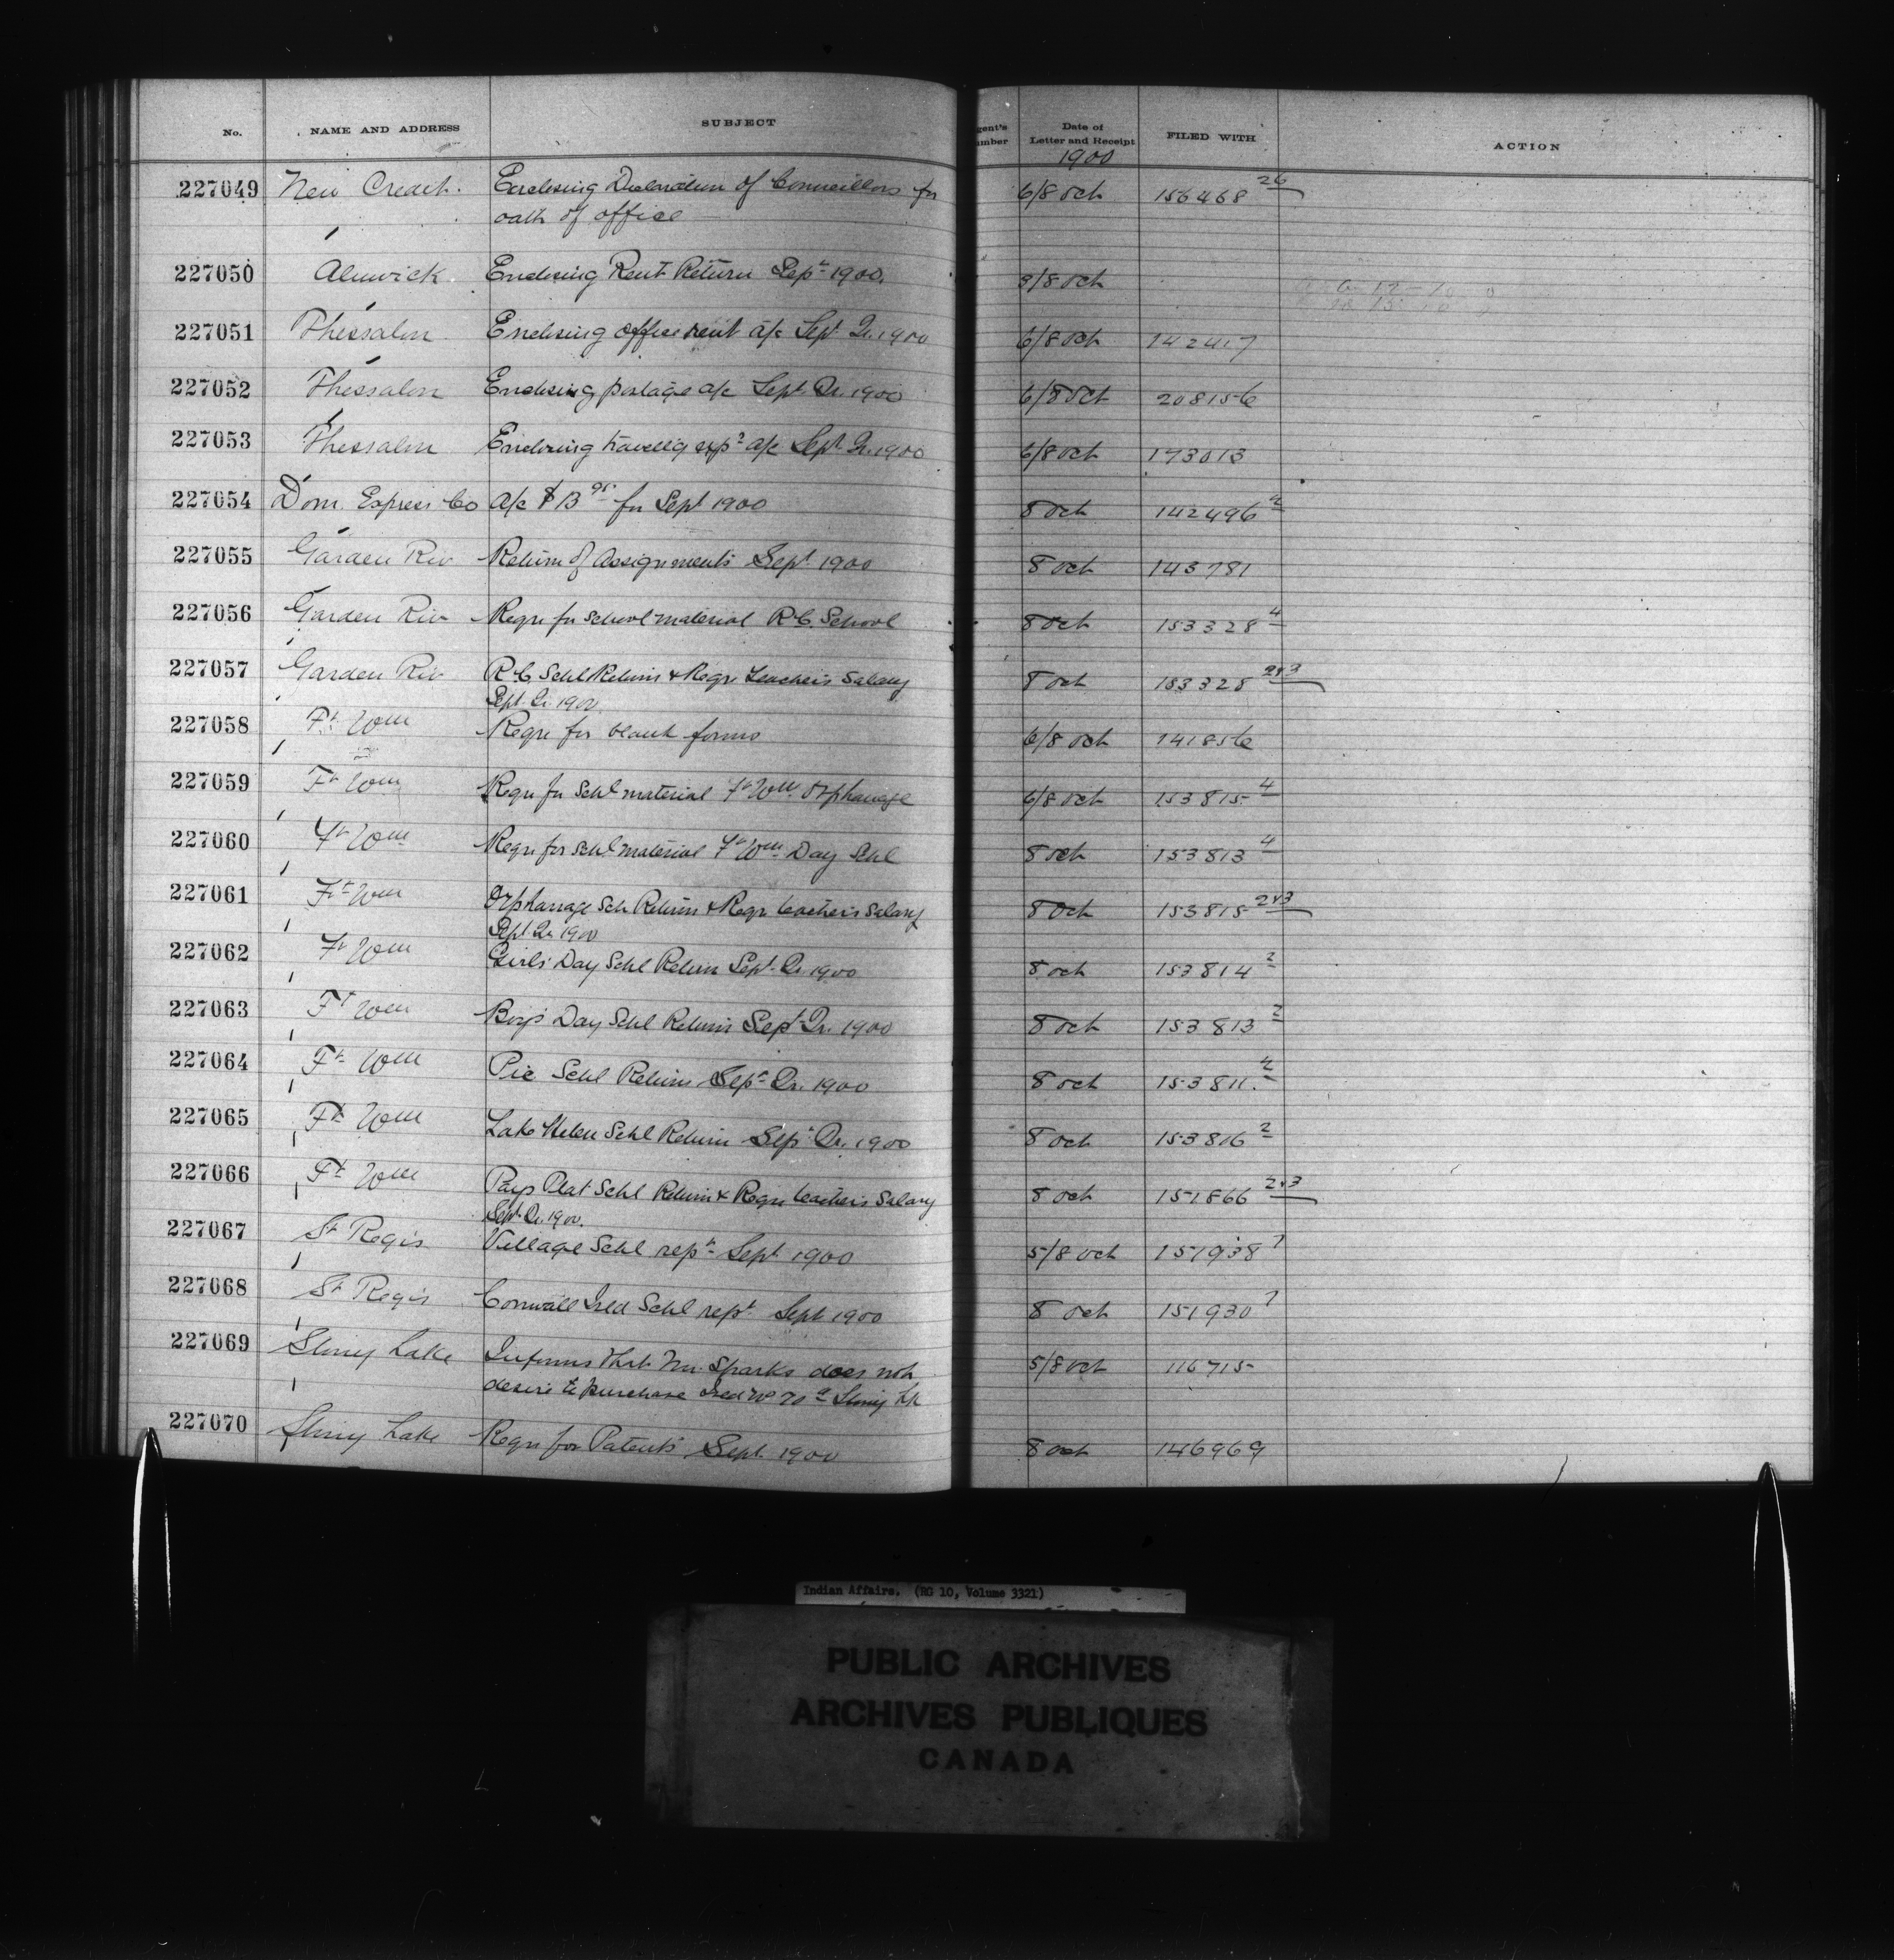 No. NAME AND ADDRESS SUBJECT gent's umber Date of Letter and Receipt FILED WITH ACTION
1900
227049 New Credit. Enclosing Declaration of Councillors for 6/8 Oct 156468 26
oath of office
227050 Alnwick Enclosing Rent Return Sept 1900. 3/8 Oct
227051 Thessalon Enclosing office rent a/c Sept Qr. 1900 6/8 Oct 142417
227052 Thessalon Enclosing postage a/c Sept Qr. 1900 6/8 Oct 208156
227053 Thessalon Enclosing travellg exps a/c Sept Qr. 1900 6/8 Oct 173013
227054 Dom. Express Co a/c $13 95 for Sept 1900 8 Oct 142496 2
227055 Garden Riv Return of Assignments Sept 1900 8 Oct 143781
227056 Garden Riv Reqn for School material R.C. School 8 Oct 153328 4
227057 Garden Riv R.C. Schl Return & Reqn Teacher's Salary 8 Oct 153328 2&3
Sept. Qr. 1900.
227058 Ft Wm Reqn for blank forms 6/8 Oct 141856
227059 Ft Wm Reqn for Schl material Ft Wm Orphanage 6/8 Oct 153815 4
227060 Ft Wm Reqn for Schl material Ft Wm Day Schl 8 Oct 153813 4
227061 Ft Wm Orphanage Sch Return & Reqn teacher's Salary 8 Oct 153815 2&3
Sept Qr. 1900
227062 Ft Wm Girls' Day Schl Return Sept. Qr. 1900 8 Oct 153814 2
227063 Ft Wm Boys' Day Schl Return Sept Qr. 1900 8 Oct 153813 2
227064 Ft Wm Pic Schl Return Sept Qr. 1900 8 Oct 153811 2
227065 Ft Wm Lake Helen Schl Return Sept Qr. 1900 8 Oct 153816 2
227066 Ft Wm Pays Plat Schl Return & Reqn teacher's Salary 8 Oct 151866 2&3
Sept. Qr. 1900.
227067 St Regis Village Schl rept Sept 1900 5/8 Oct 151938 7
227068 St Regis Cornwall Isld Schl rept Sept 1900 8 Oct 151930 7
227069 Stony Lake Informs that Mr. Sparks does not 5/8 Oct 116715
desire to purchase Isld No 70 Stony Lk
227070 Stony Lake Reqn for Patents Sept 1900 8 Oct 146969
Indian Affairs. (RG 10, Volume 3321)
PUBLIC ARCHIVES
ARCHIVES PUBLIQUES
CANADA